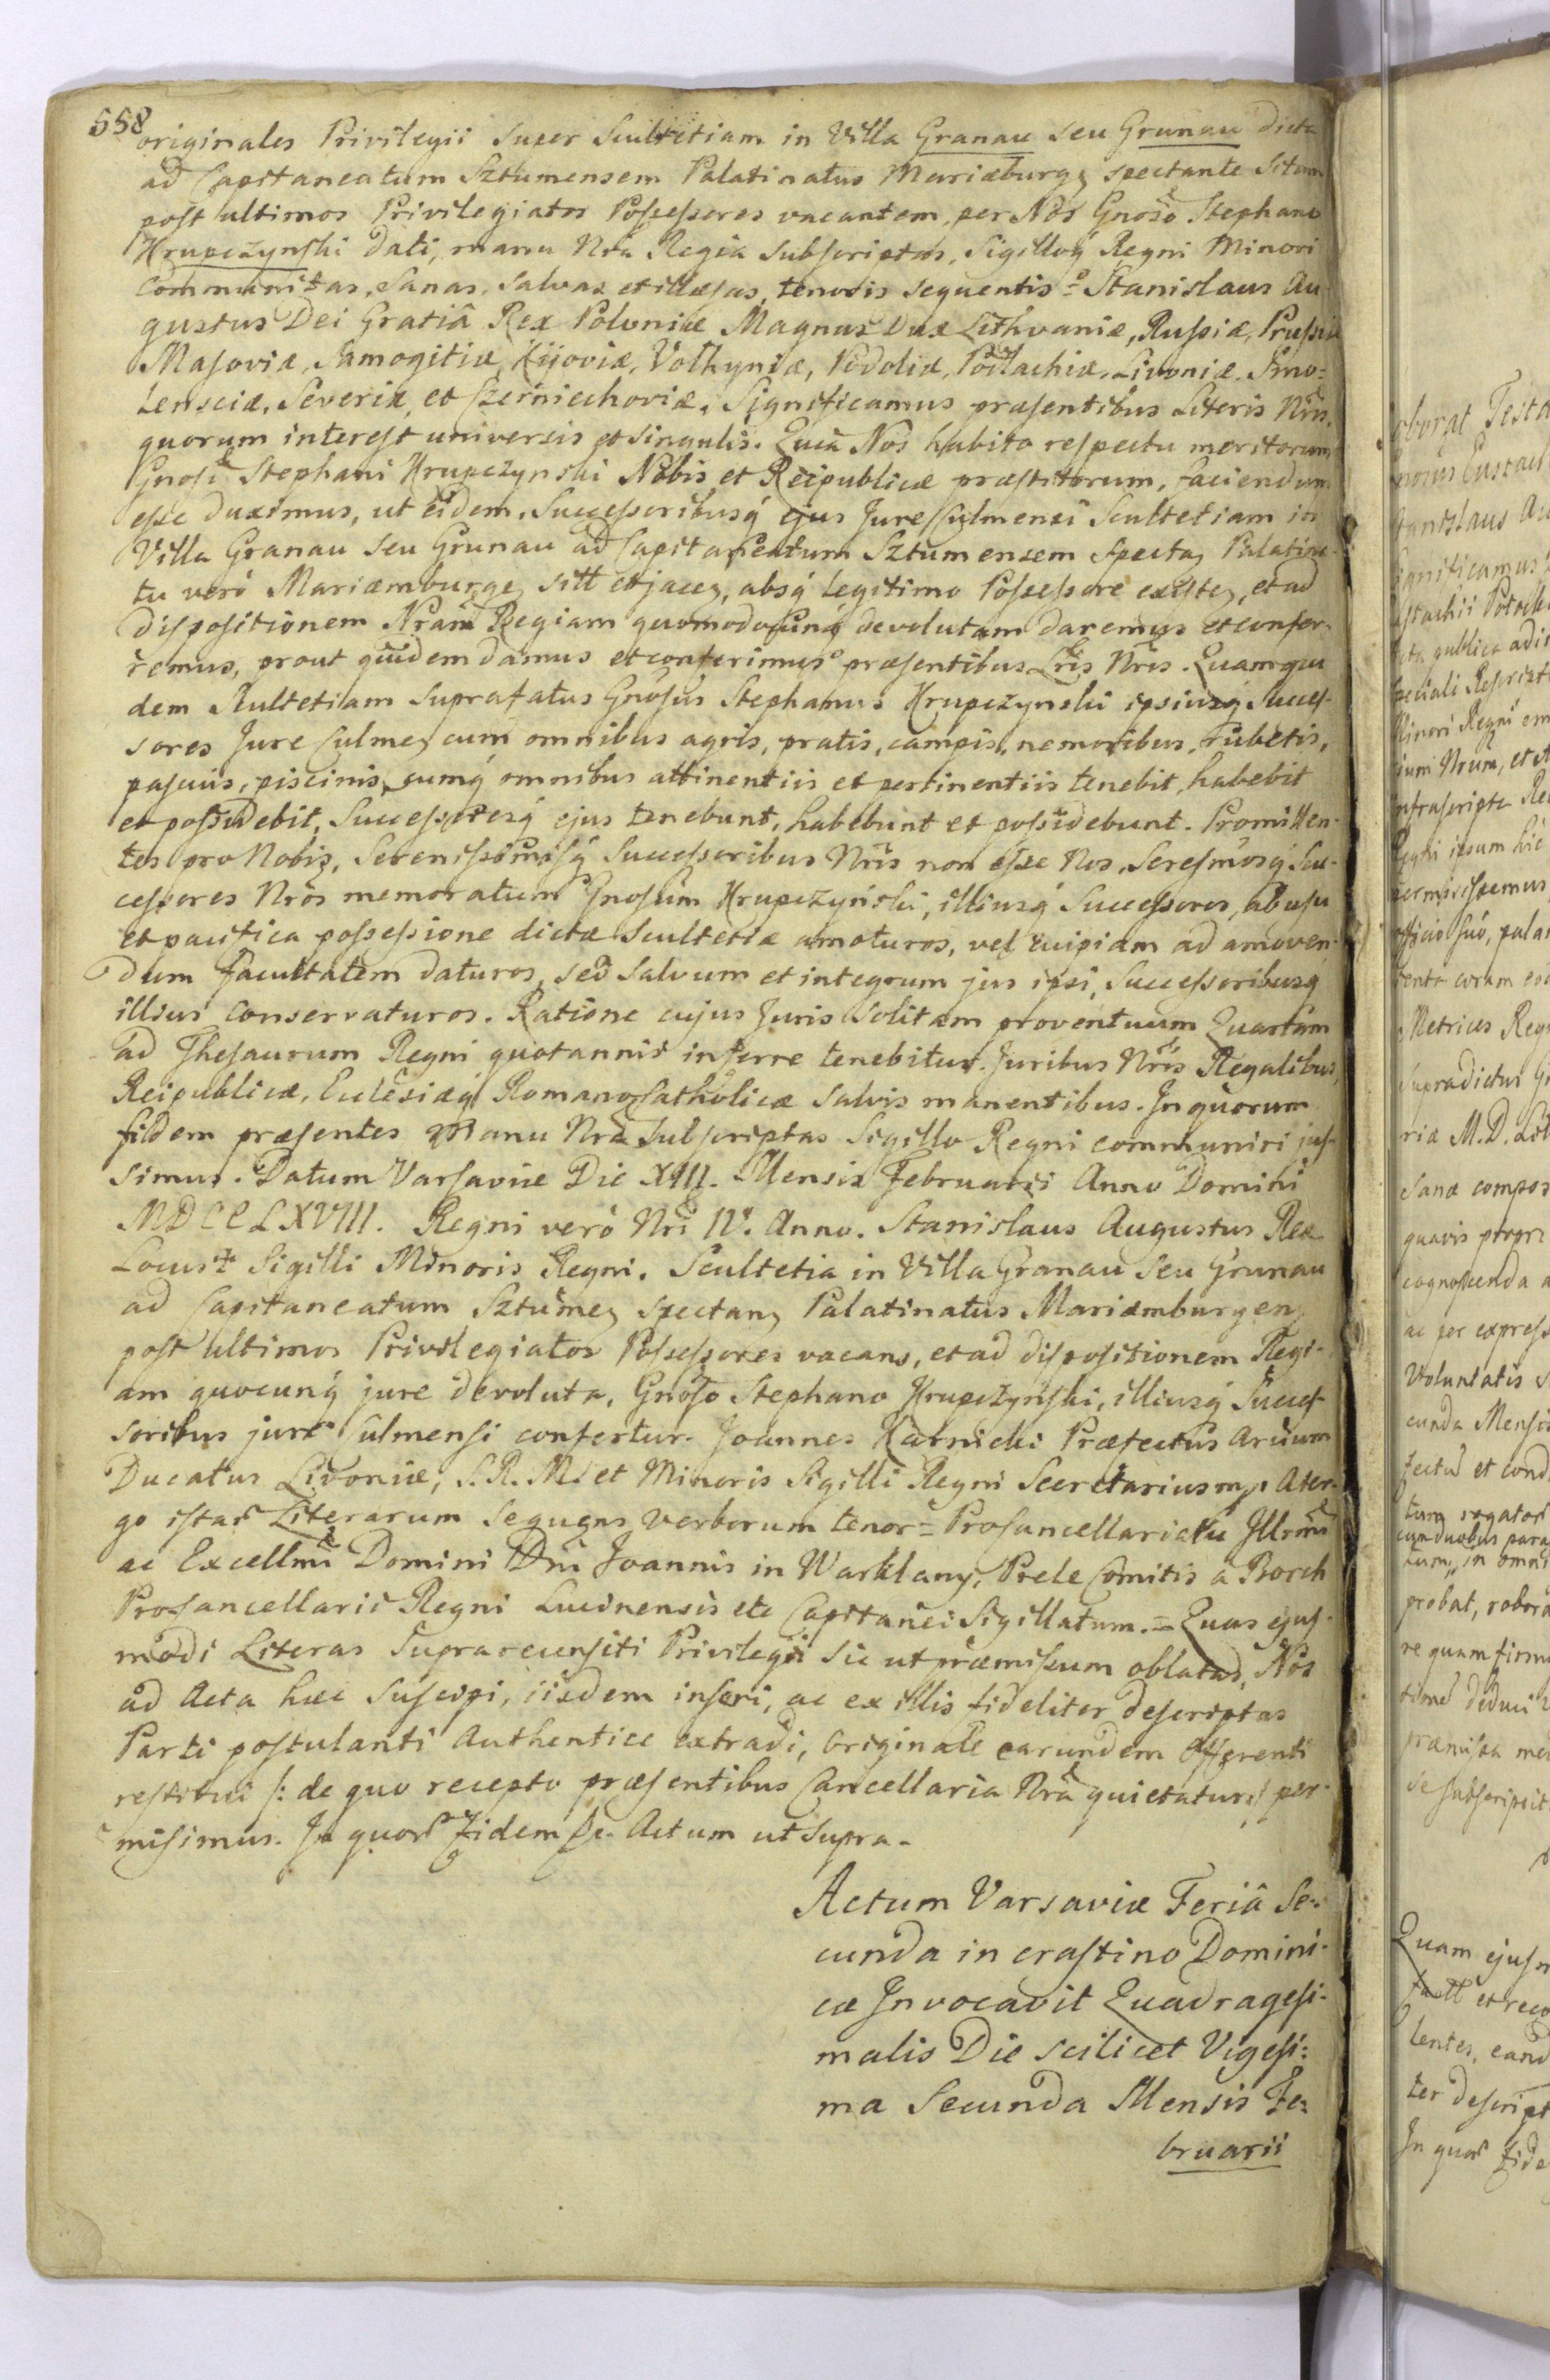 558
originales Privilegii super Scultetiam in Villa Granau seu Grunau dicta
ad Capitaneatum Sztumensem Palatinatus Mariæburg, spectante sitam
post ultimos Privilegiatos Possessores vacantem, per Nos Gnoso Stephano
Krupczynski dati, manu Nra Regia subscriptas, Sigilloq́ Regni Minori
Communitas, sanas, salvas et illæsas, tenoris sequentis = Stanislaus Au
gustus Dei Gratiâ Rex Poloniæ Magnus Dux Lithvaniæ, Russiæ, Prussiæ
Masoviæ, Samogitiæ, Kijoviæ, Volhyniæ, Podoliæ, Podlachiæ, Livoniæ, Smo=
lensciæ, Severiæ, et Czerniechoviæ. Significamus præsentibus Literis Nris,
quorum interest universis et singulis. Quia Nos habito respectu meritorum
Gnosi Stephani Krupczynski Nobis et Reipublicæ præstitorum, faciendum
esse duximus, ut eidem, Successoribusq́ ejus Jure Culmensi Scultetiam in
Villa Granau seu Grunau ad Capitaneatum Sztumensem specta, Palatina-
tu verò Mariæmburge, sitt et jace, absq́ legitimo Possessore existe, et ad
dispositionem Nram Regiam quomodocunq́ devolutam daremus et confer-
remus, prout quidem damus et conferimus præsentibus Lris Nris. Quam qui
dem Scultetiam suprafatus Gnosus Stephanus Krupczynski ipsiusq́ Succes-
sores Jure Culme, cum omnibus agris, pratis, campis, nemoribus, rubetis,
pascuis, piscinis, cumq́ omnibus attinentiis et pertinentiis tenebit, habebit
et possidebit, Successoresq́ ejus tenebunt, habebunt et possidebunt. Promitten-
tes pro Nobis, Serenissimisq́ Successoribus Nris non esse Nos, Seresmosq́ Suc-
cessores Nros memoratum Gnosum Krupczynski, illiusq́ Successores, ab usu
et pacifica possessione dictæ Scultetiæ amoturos, vel cuipiam ad amoven-
dum facultatem daturos, sed salvum et integrum jus ipsi, Successoribusq́
illius conservaturos. Ratione cujus Juris solitam proventuum Quartam
ad Thesaurum Regni quotannis inferre tenebitur. Juribus Nris Regalibus,
Reipublicæ, Ecclesiæq́ Romano Catholicæ salvis manentibus. In quorum
fidem præsentes Manu Nra subscriptas Sigillo Regni communiri jus-
simus. Datum Varsaviæ Die XIII. Mensis Februarii Anno Domini
MDCCLXVIII. Regni verò Nri IV. Anno. Stanislaus Augustus Rex
Locus ✝ Sigilli Minoris Regni. Scultetia in Villa Granau seu Grunau
ad Capitaneatum Sztume, spectan, Palatinatus Mariæmburgen,
post ultimos Privilegiatos Possessores vacans, et ad dispositionem Regi-
am quocunq́ jure devoluta, Gnoso Stephano Krupczynski, illiusq́ Succes-
soribus jure Culmensi confertur. Joannes Karnicki Præfectus Arcium
Ducatus Livoniæ, S. R. M. et Minoris Sigilli Regni Secretarius mp. A ter-
go istar Literarum sequens verborum tenor = Procancellariatu Illrmi
ac Excellmi Domini Dni Joannis in Warklany, Prele Comitis a Borch
Procancellarii Regni Lucinensis etc Capitanei Sigillatum. = Quas ejus-
modi Literas suprarecensiti Privilegii sic ut præmissum oblatas, Nos
ad Acta hæc suscipi, iisdem inseri, ac ex illis fideliter descriptas
Parti postulanti Authentice extradi, Originale earundem Offerenti
restitui /: de quo recepto præsentibus Cancellaria Nra quietatur :/ per-
misimus. In quor Fidem &c. Actum ut supra.
Actum Varsaviæ Feriâ Se-
cunda in crastino Domini-
cæ Invocavit Quadragesi-
malis Die scilicet Vigesi=
ma Secunda Mensis Fe=
bruarii